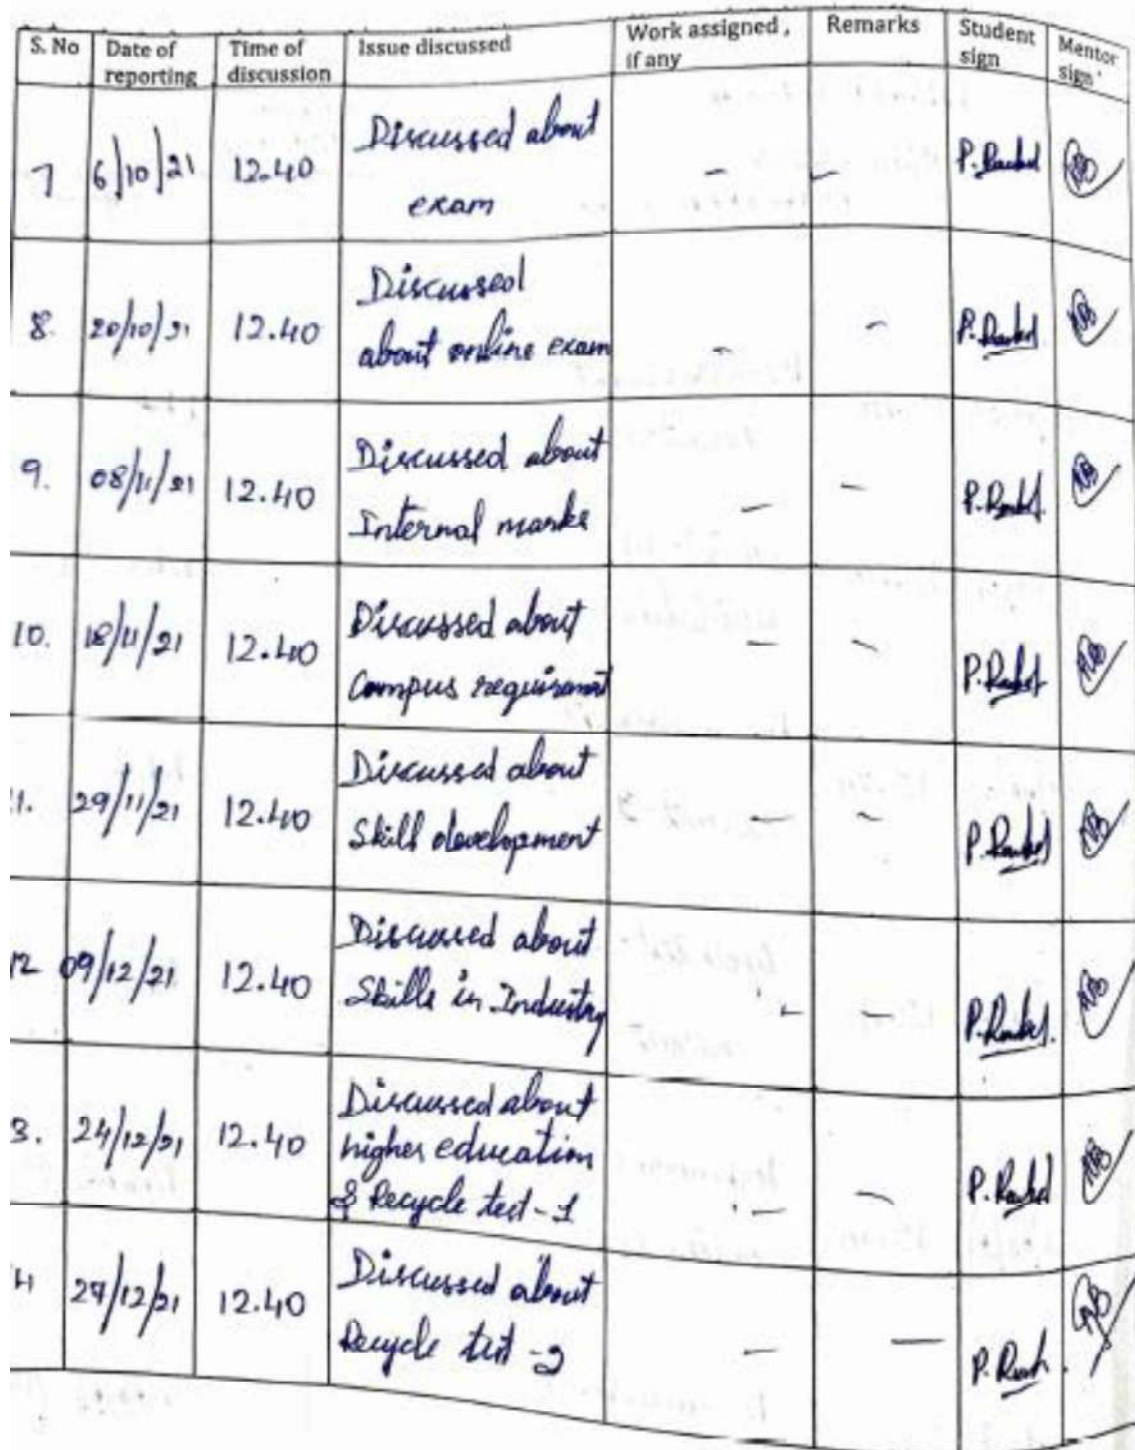 S. No Date of reporting Time of discussion Issue discussed Work assigned, if any Remarks Student sign Mentor sign
7 6/10/21 12.40 Discussed about
exam
– – P.
8. 20/10/21 12.40 Discussed
about online exam
– – P.
9. 08/11/21 12.40 Discussed about
Internal marks
– – P.
10. 18/11/21 12.40 Discussed about
Campus requirement
– – P.
1. 29/11/21 12.40 Discussed about
Skill development
– – P.
12 09/12/21 12.40 Discussed about
Skills in Industry
– – P.
3. 24/12/21 12.40 Discussed about
higher education
& Recycle test-1
– – P.
4 27/12/21 12.40 Discussed about
Recycle test-2
– – P.